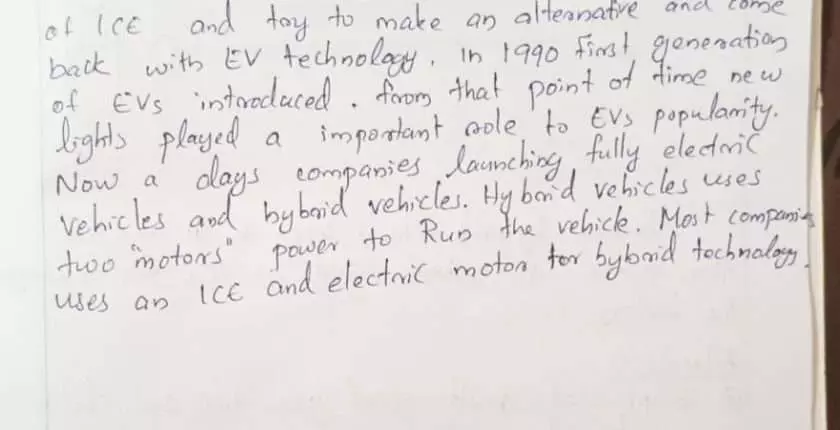 of ICE and try to make an alternative and come
back with EV technology. In 1990 first generation
of EVs introduced. from that point of time new
lights played a important role to EVs popularity.
Now a days companies launching fully electric
vehicles and hybrid vehicles. Hybrid vehicles uses
two "motors" power to Run the vehicle. Most companies
uses an ICE and electric motor for hybrid technology.